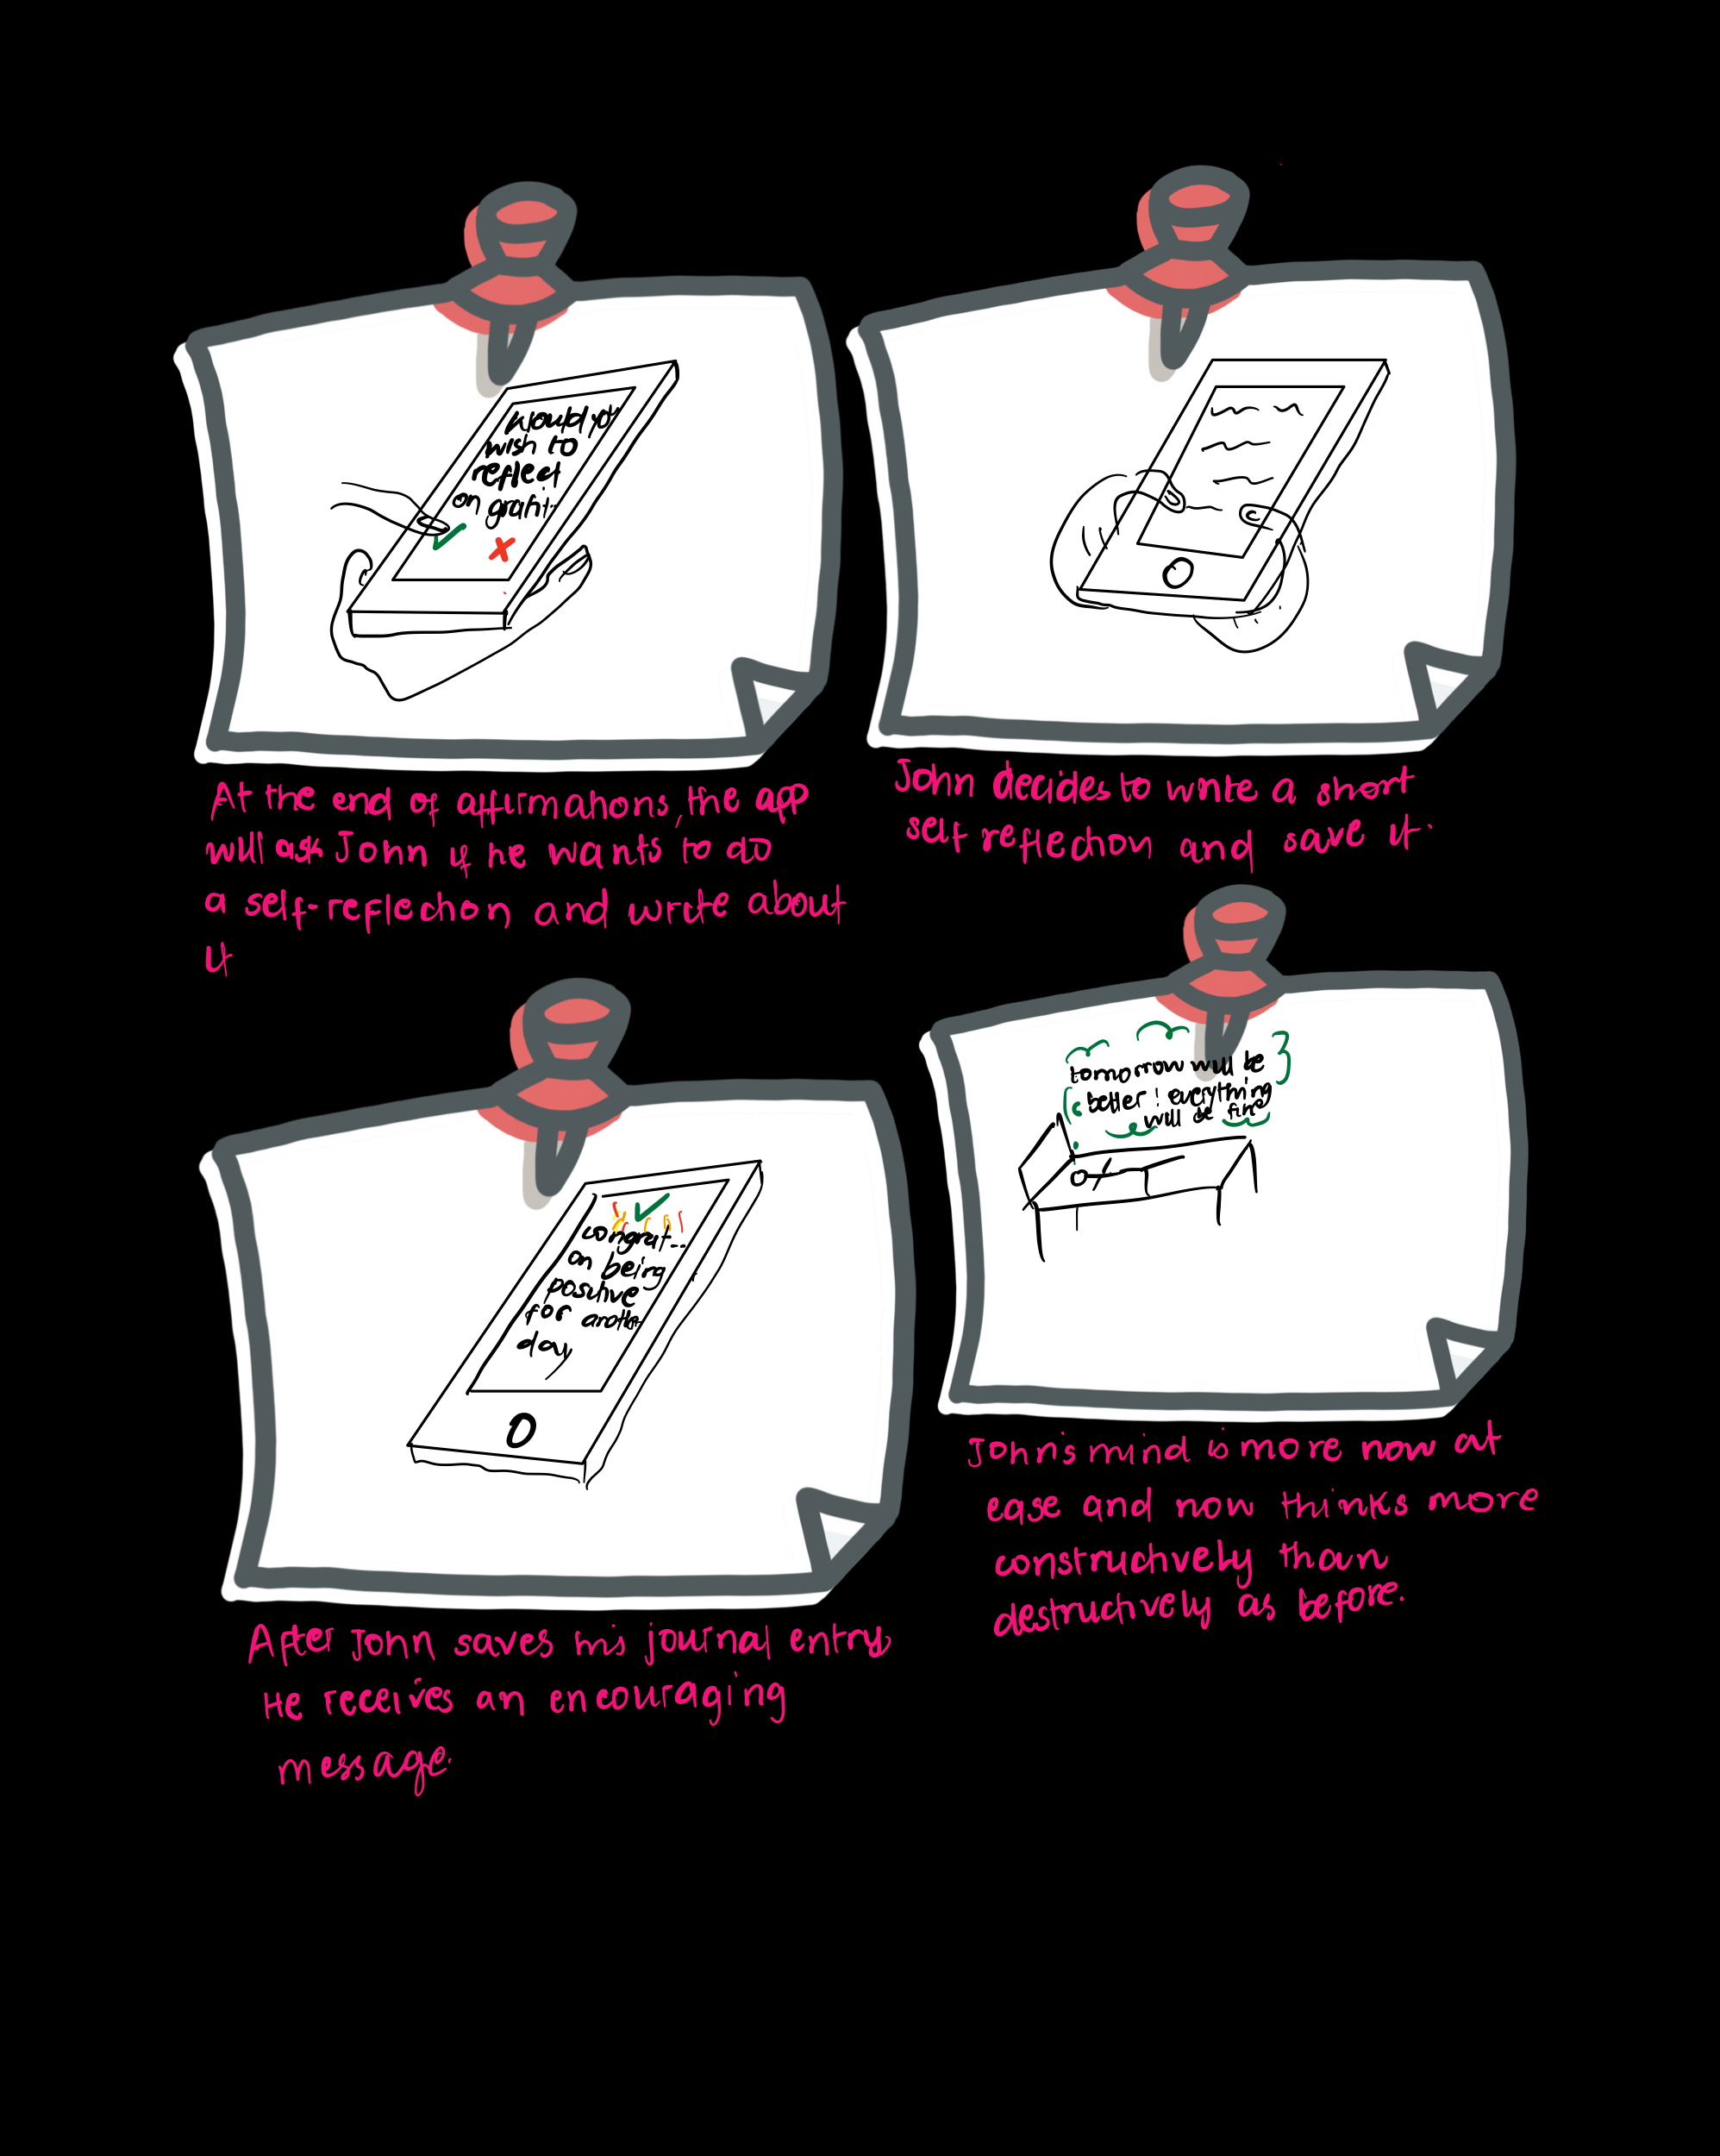 would yo
wish to
reflect
on grati..
At the end of affirmations, the app
will ask John if he wants to do
a self-reflection and write about
it
John decides to write a short
self reflection and save it.
congrat...
on being
positive
for anothe
day
After John saves his journal entry
He receives an encouraging
message.
tomorrow will be
better! everything
will be fine
John's mind is more now at
ease and now thinks more
constructively than
destructively as before.